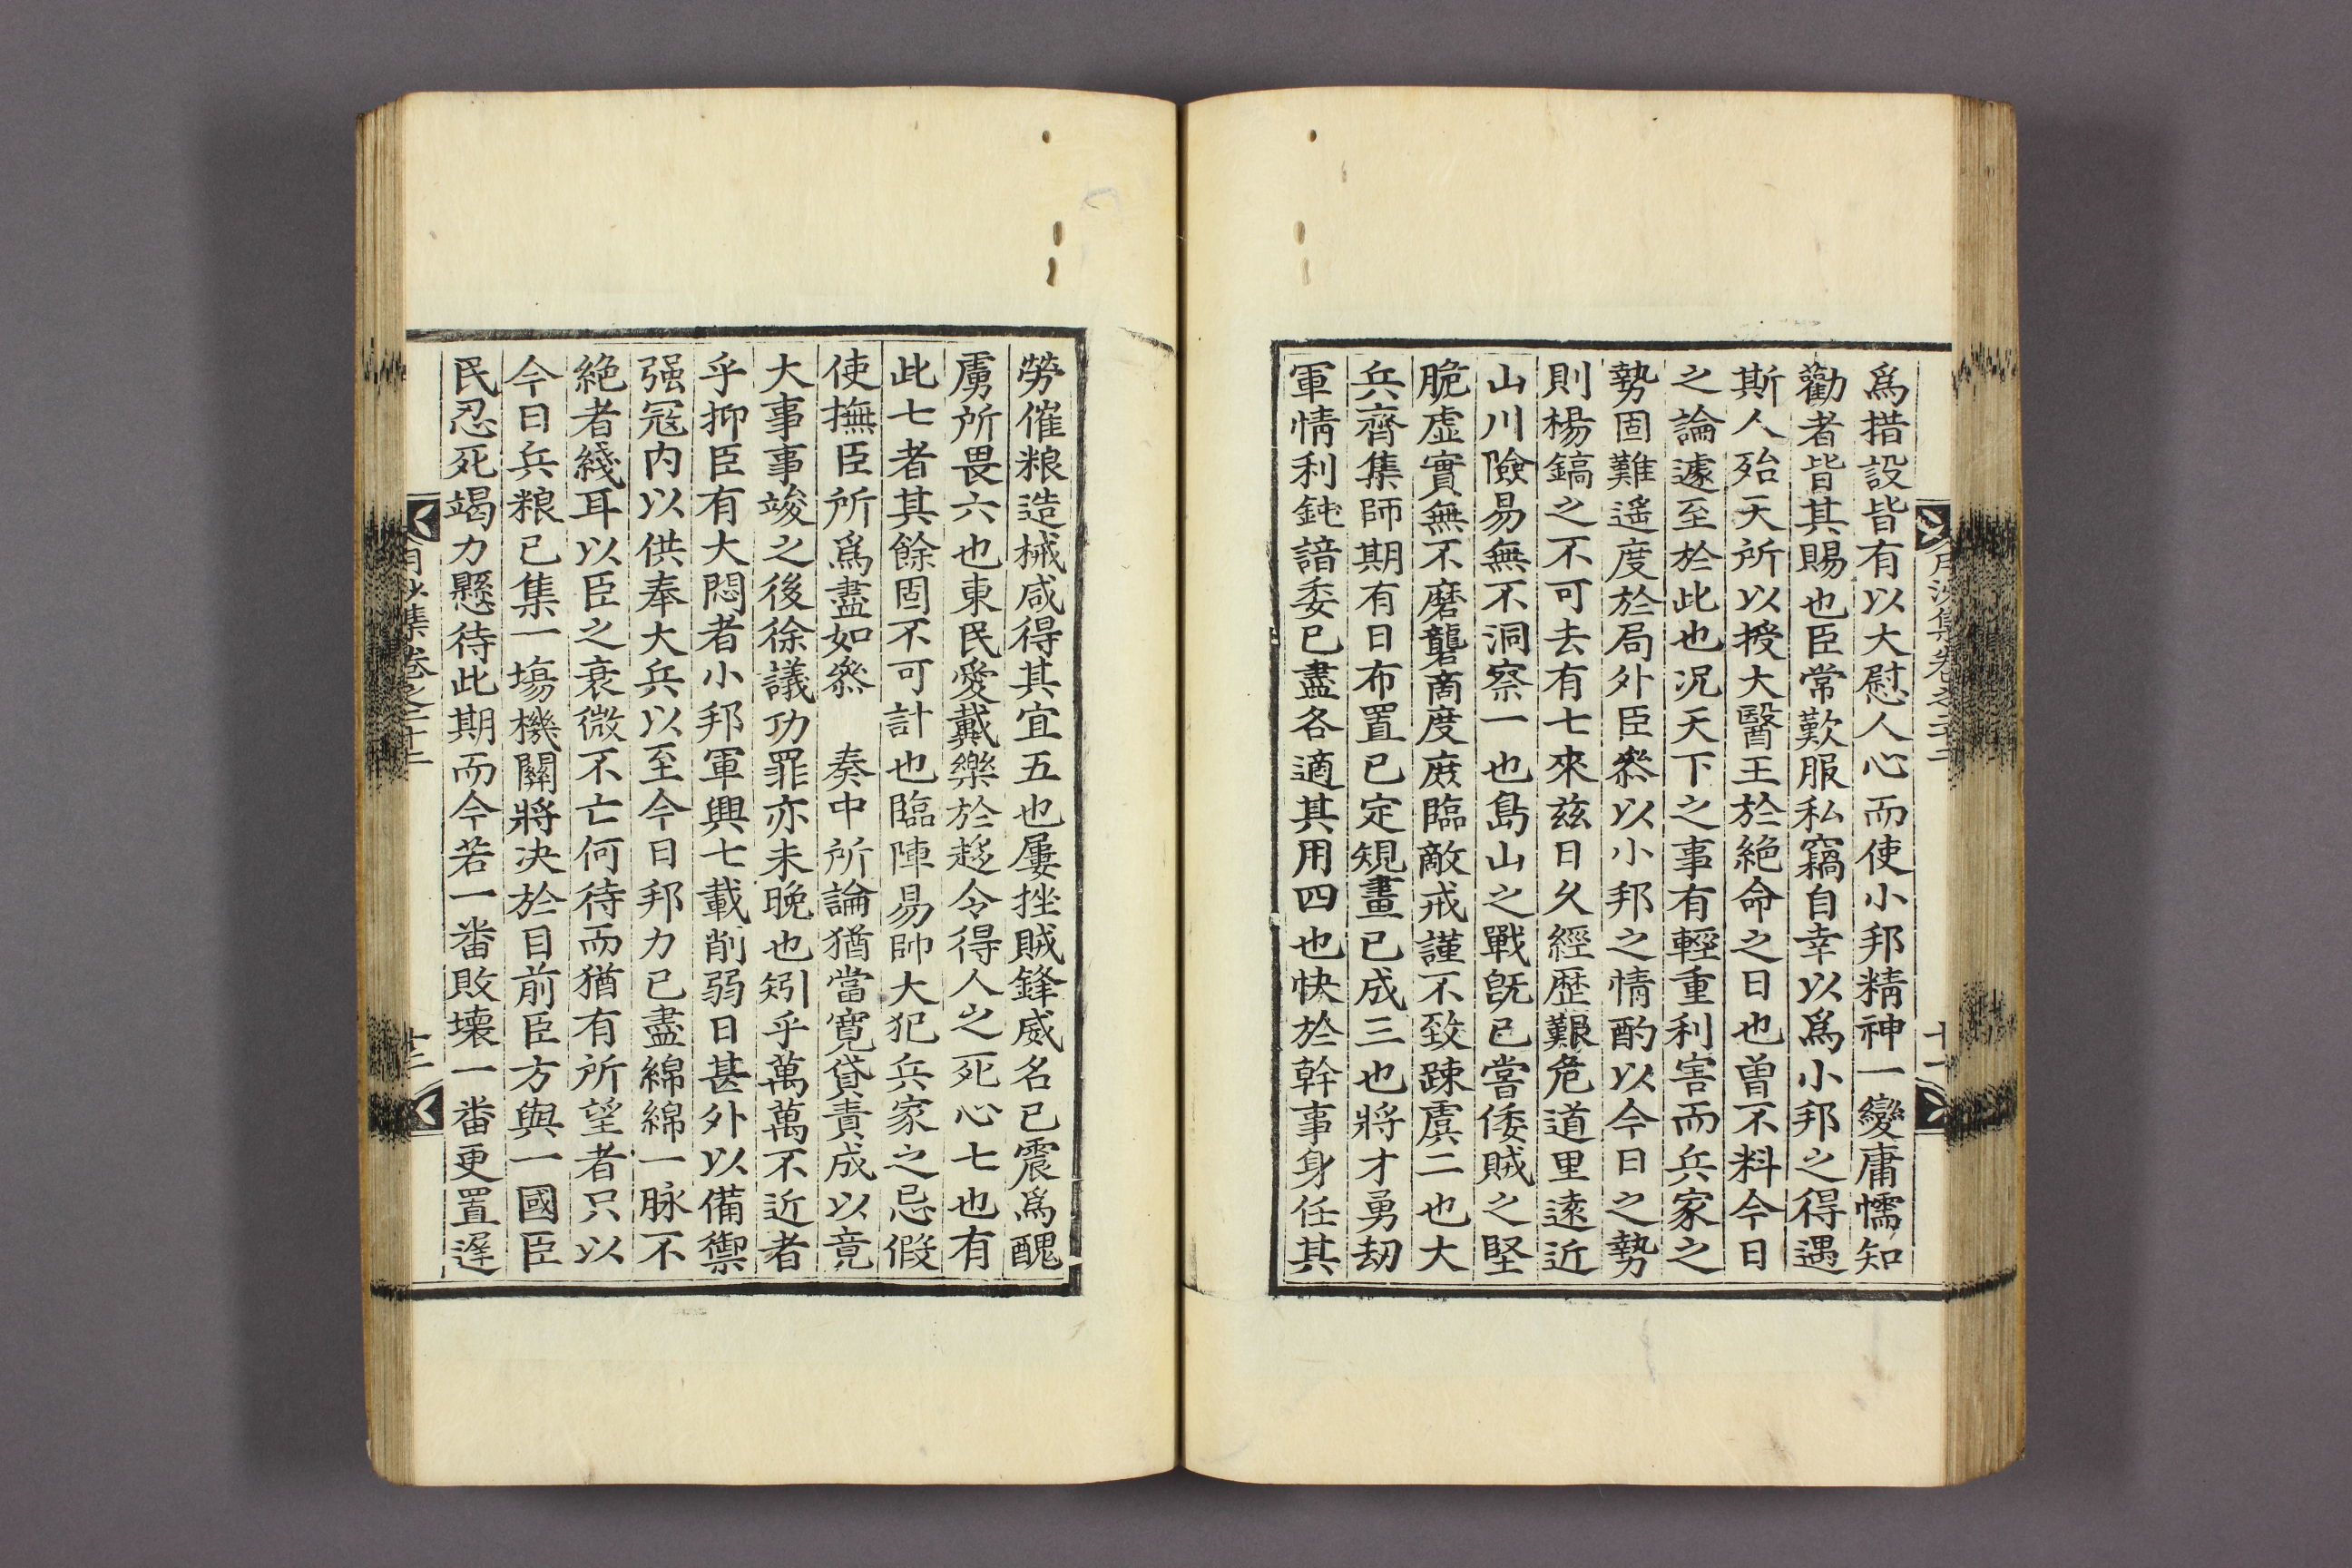 月沙集卷之二十二
十一
爲措設皆有以大慰人心而使小邦精神一變庸懦知
勸者皆其賜也臣常歎服私竊自幸以爲小邦之得遇
斯人殆天所以授大醫王於絶命之日也曾不料今日
之論遽至於此也况天下之事有輕重利害而兵家之
勢固難遥度於局外臣叅以小邦之情酌以今日之勢
則楊鎬之不可去有七來兹日久經歷艱危道里遠近
山川險易無不洞察一也島山之戰旣已嘗倭賊之堅
脆虛實無不磨礱商度庻臨敵戒謹不致踈虞二也大
兵齊集師期有日布置已定規畫已成三也將才勇刼
軍情利鈍諳委已盡各適其用四也快於幹事身任其
勞催粮造械咸得其宜五也屢挫賊鋒威名已震爲醜
虜所畏六也東民愛戴樂於趍令得人之死心七也有
此七者其餘固不可計也臨陣易帥大犯兵家之忌假
使撫臣所爲盡如叅 奏中所論猶當寬貸責成以竟
大事事竣之後徐議功罪亦未晚也矧乎萬萬不近者
乎抑臣有大悶者小邦軍興七載削弱日甚外以備禦
强冦内以供奉大兵以至今日邦力已盡綿綿一脉不
絶者綫耳以臣之衰微不亡何待而猶有所望者只以
今日兵粮已集一塲機關將决於目前臣方與一國臣
民忍死竭力懸待此期而今若一番敗壞一番更置遅
月沙集卷之二十二
十二